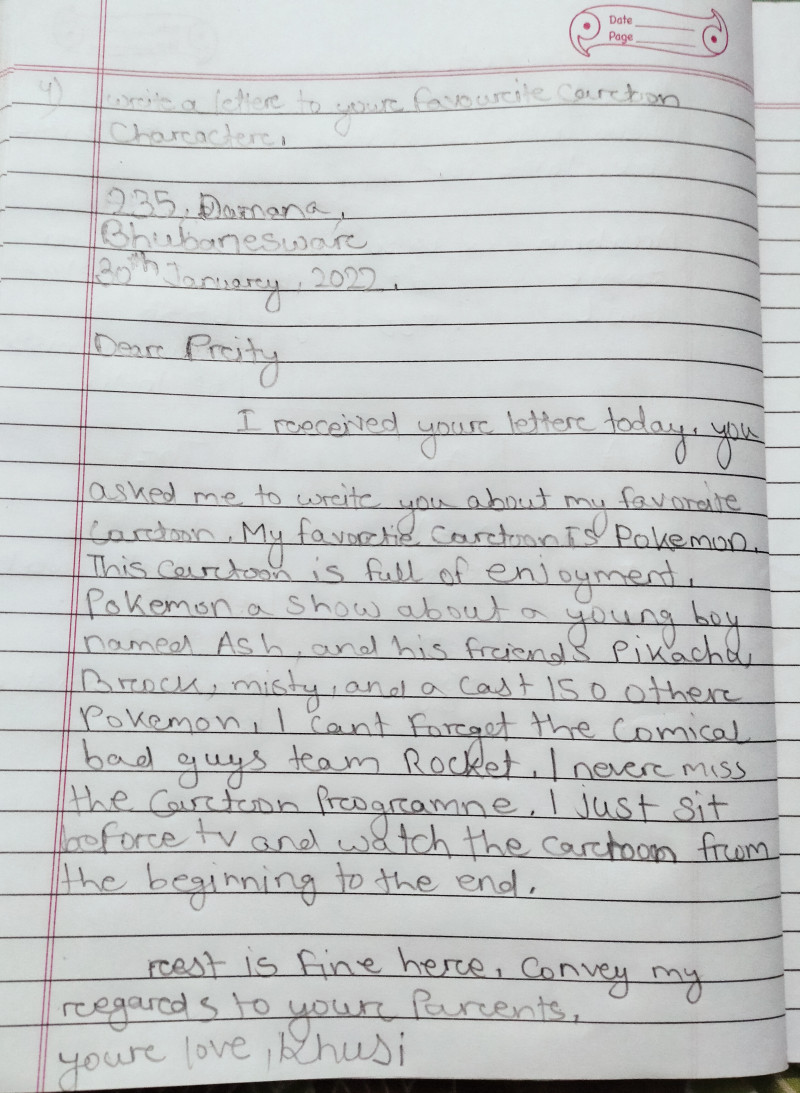 Date
Page
4) write a letter to your favourite Carction
Character.
235, Damana,
Bhubaneswar
30th January, 2022.
Dear Preity
I received your letter today. you
asked me to write you about my favorite
Cartoon. My favortie Cartoon IS Pokemon.
This Cartoon is full of enjoyment.
Pokemon a show about a young boy
named Ash, and his friends Pikachu,
Brock, misty, and a cast 150 other
Pokemon. I cant Forget the Comical
bad guys team Rocket. I never miss
the Cartoon Programne. I just sit
before tv and watch the cartoon from
the beginning to the end.
rest is Fine here. Convey my
regards to your Parents.
your love, Khusi